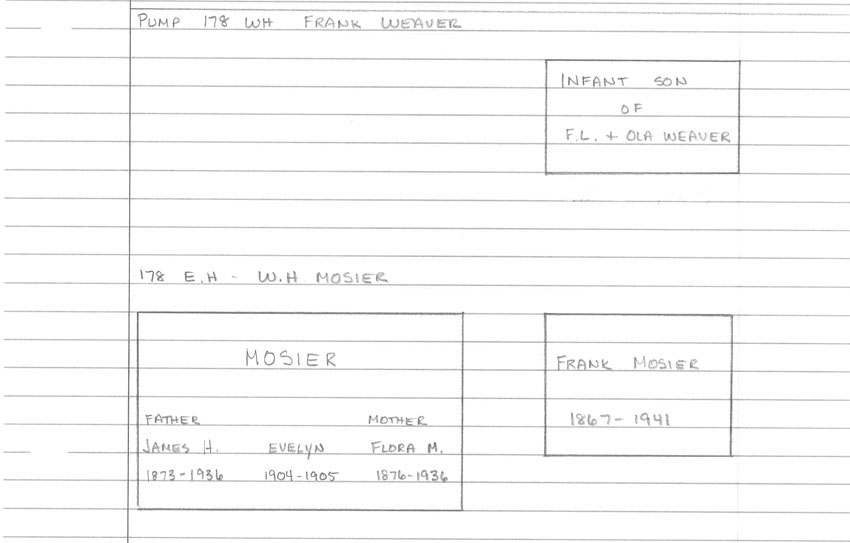 PUMP 178 WH FRANK WEAVER
INFANT SON
OF
F.L. + OLA WEAVER
178 E.H - W.H MOSIER
MOSIER
FATHER MOTHER
JAMES H. EVELYN FLORA M.
1873-1936 1904-1905 1876-1936
FRANK MOSIER
1867-1941